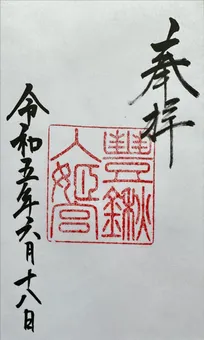 奉拝
豊鍬
入姫宮
令和五年六月十八日